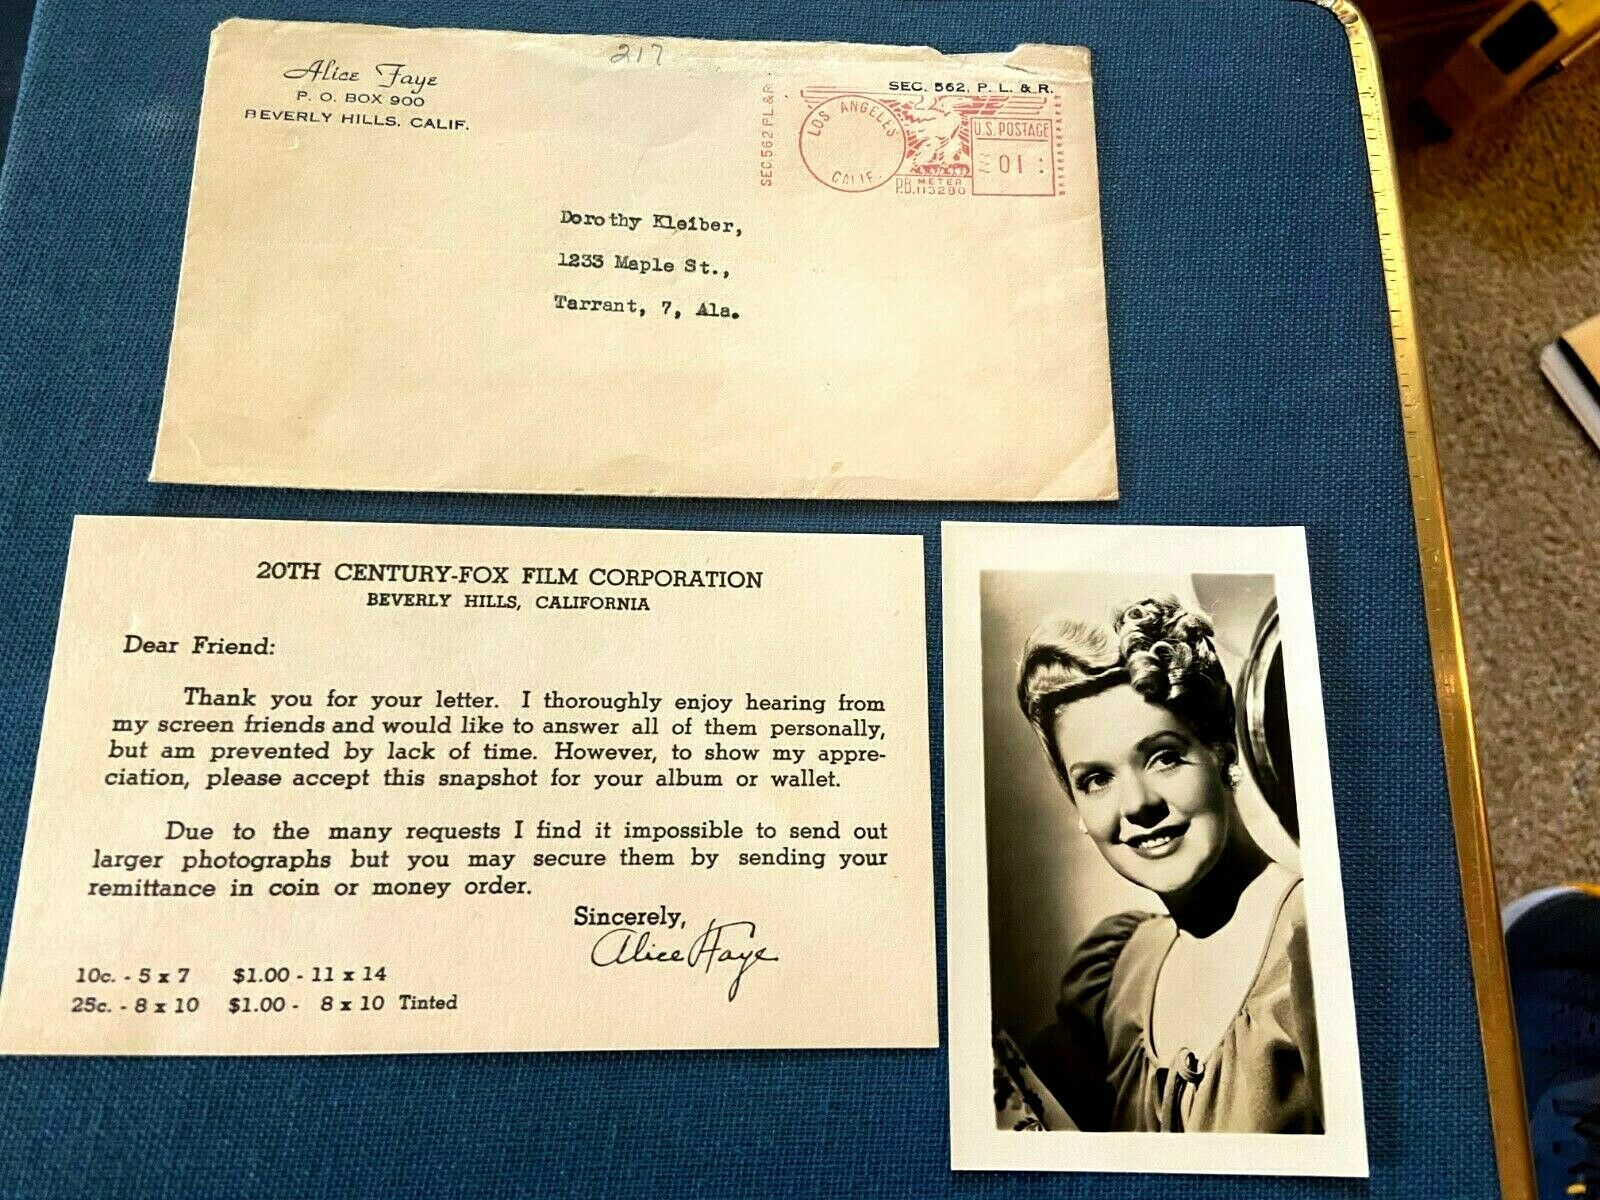 217
Alice Faye
P. O. BOX 900
BEVERLY HILLS, CALIF.
SEC. 562, P. L. & R.
SEC. 562 P.L.& R.
LOS ANGELES
CALIF.
U.S. POSTAGE
01
P.B. METER
113280
Dorothy Kleiber,
1233 Maple St.,
Tarrant, 7, Ala.
20TH CENTURY-FOX FILM CORPORATION
BEVERLY HILLS, CALIFORNIA
Dear Friend:
Thank you for your letter. I thoroughly enjoy hearing from
my screen friends and would like to answer all of them personally,
but am prevented by lack of time. However, to show my appre-
ciation, please accept this snapshot for your album or wallet.
Due to the many requests I find it impossible to send out
larger photographs but you may secure them by sending your
remittance in coin or money order.
Sincerely,
Alice Faye
10c. - 5 x 7 $1.00 - 11 x 14
25c. - 8 x 10 $1.00 - 8 x 10 Tinted